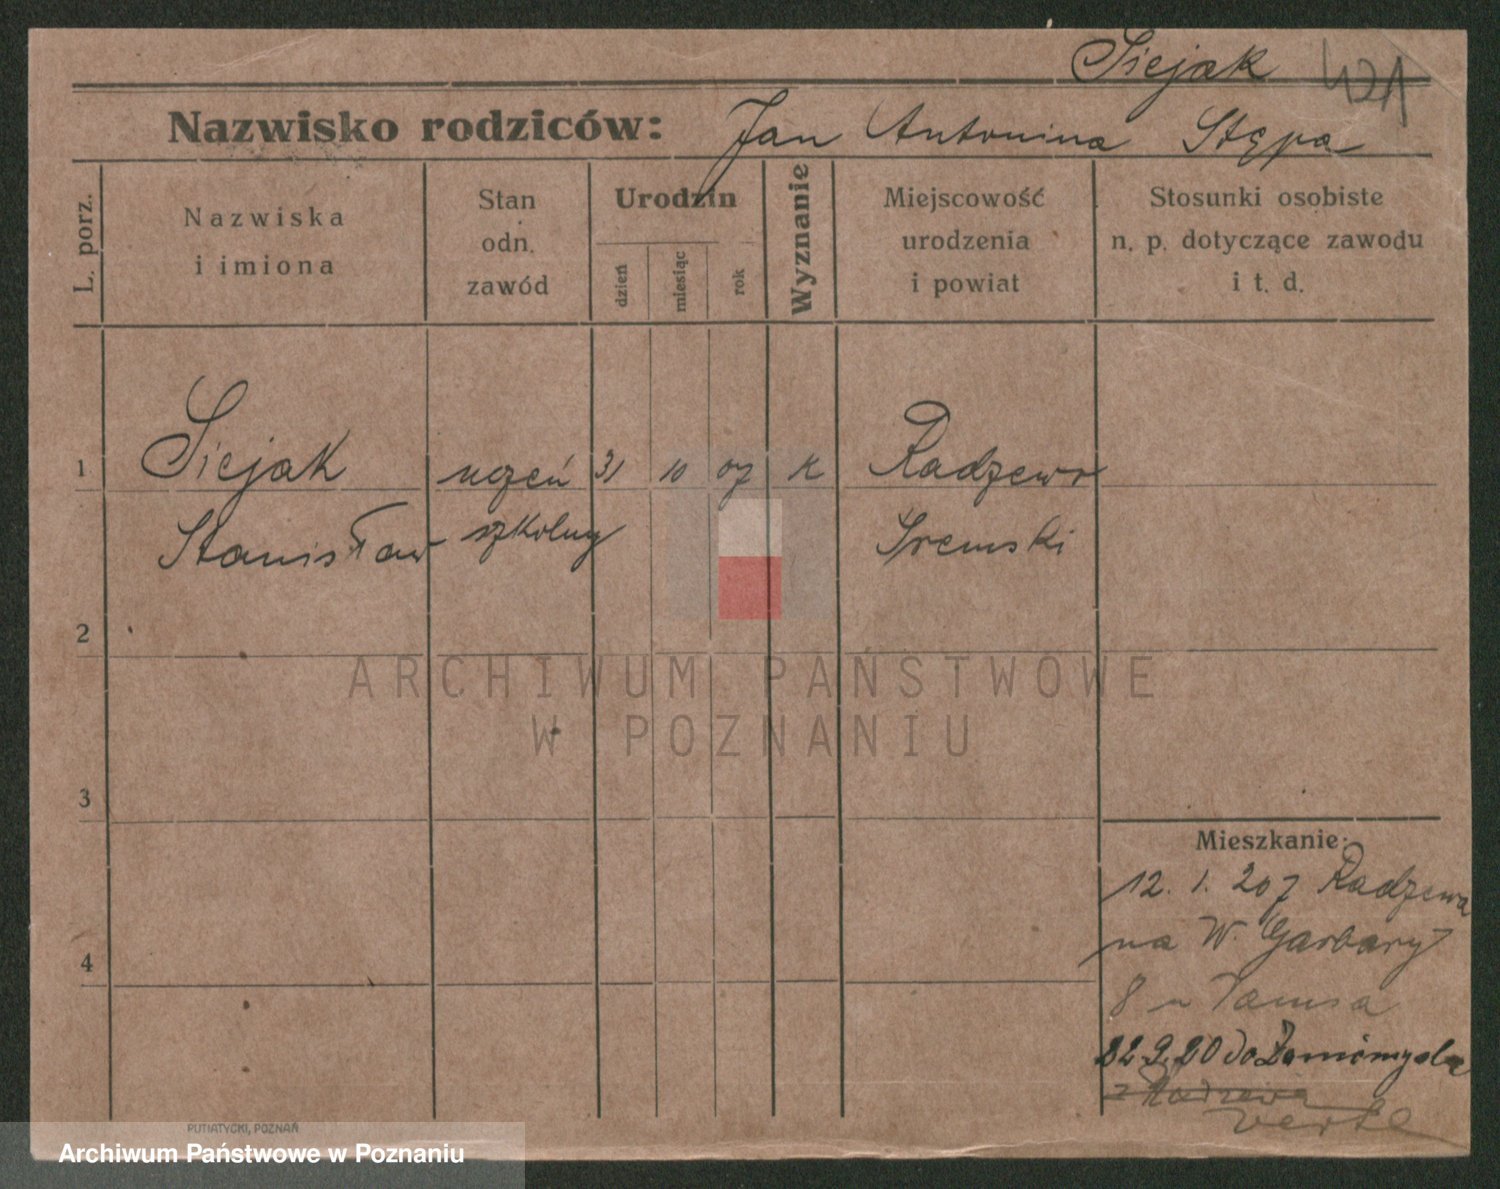 Siejak 421
Nazwisko rodziców: Jan Antonina Stępa
L. porz.
Nazwiska
i imiona
Stan
odn.
zawód
Urodzin
dzień
miesiąc
rok
Wyznanie
Miejscowość
urodzenia
i powiat
Stosunki osobiste
n. p. dotyczące zawodu
i t. d.
1 Siejak uczeń 31 10 07 K Radzewo
Stanisław szkolny Sremski
2
ARCHIWUM PAŃSTWOWE
W POZNANIU
3
Mieszkanie:
12. 1. 20 z Radzewa
na W. Garbary
4
8 u Tomsa
22 9. 20 do Zaniemysla
z Radzewa
verte
PUTIATYCKI, POZNAŃ
Archiwum Państwowe w Poznaniu